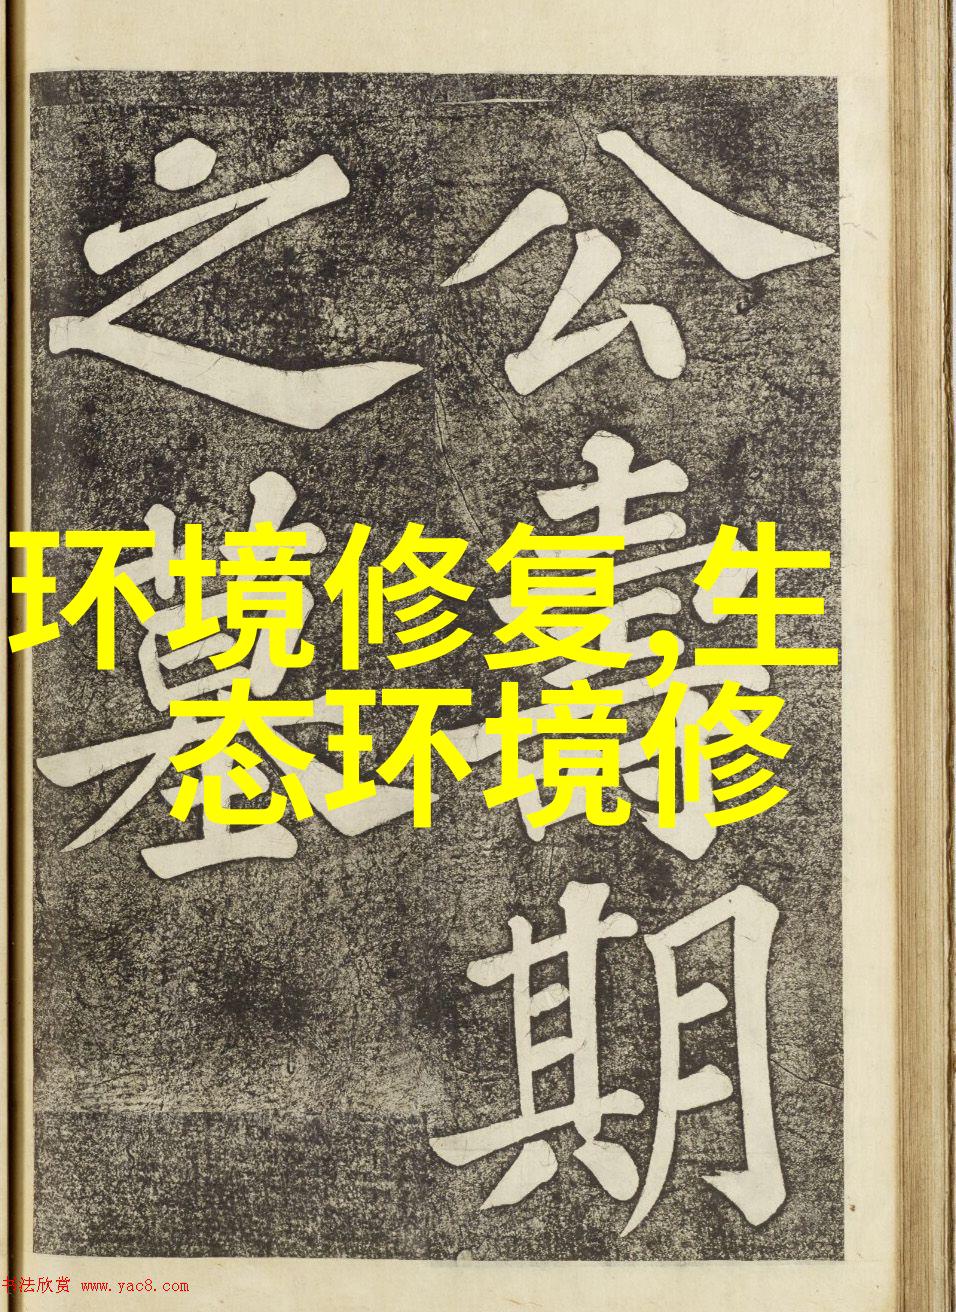 环境修复,生
态环境修
公
期
之墓
书法欣赏 www.yac8.com